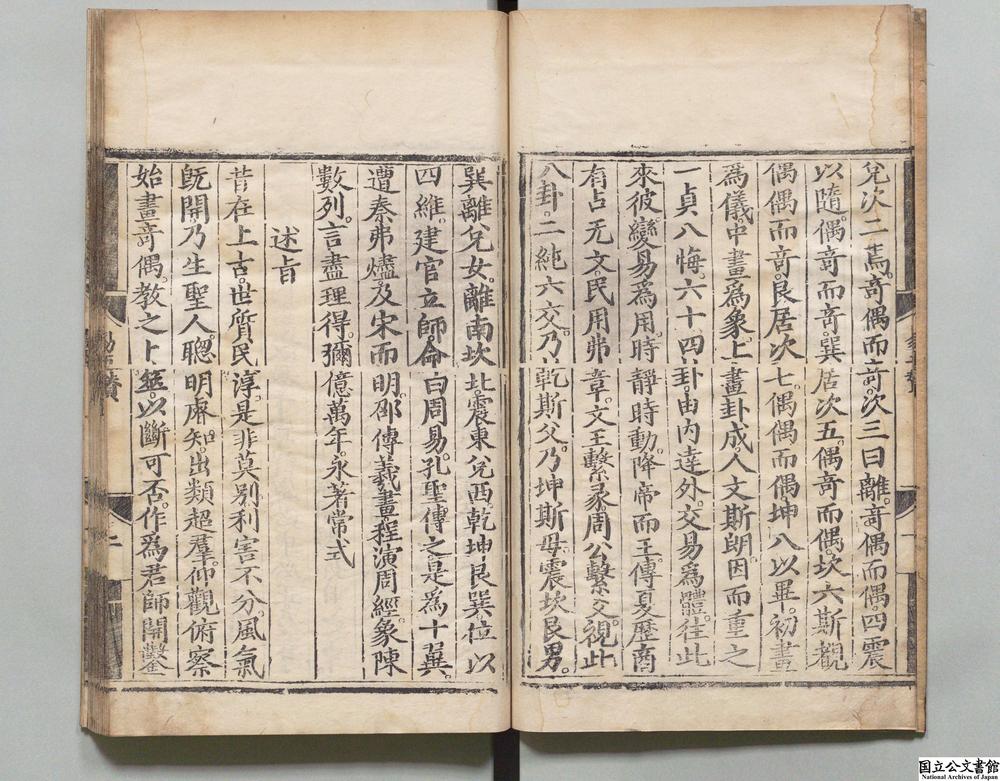 兌次二焉。竒偶而竒。次三曰離。竒偶而偶。四震
以隨。偶竒而竒。巽居次五。偶竒而偶。坎六斯覩
偶偶而竒。艮居次七。偶偶而偶。坤八以畢。初畫
為儀。中畫為象。上畫卦成。人文斯朗。因而重之
一貞八悔。六十四卦。由内達外。交易為體。往此
來彼。變易為用。時靜時動。降帝而王。傳夏歷商
有占无文。民用弗章。文王繫彖。周公繫爻。視此
八卦。二純六交。乃乾斯父。乃坤斯母。震坎艮男。
巽離兌女。離南坎北。震東兌西。乾坤艮巽。位以
四維。建官立師。命曰周易。孔聖傳之。是為十翼。
遭秦弗燼。及宋而明。邵傳羲畫。程演周經。象陳
數列。言盡理得。彌億萬年。永著常式
述旨
昔在上古。世質民淳。是非莫別。利害不分。風氣
旣開。乃生聖人。聦明睿知。出類超羣。仰觀俯察
始畫竒偶。教之卜筮。以斷可否。作為君師。開鑿
二
国立公文書館
National Archives of Japan